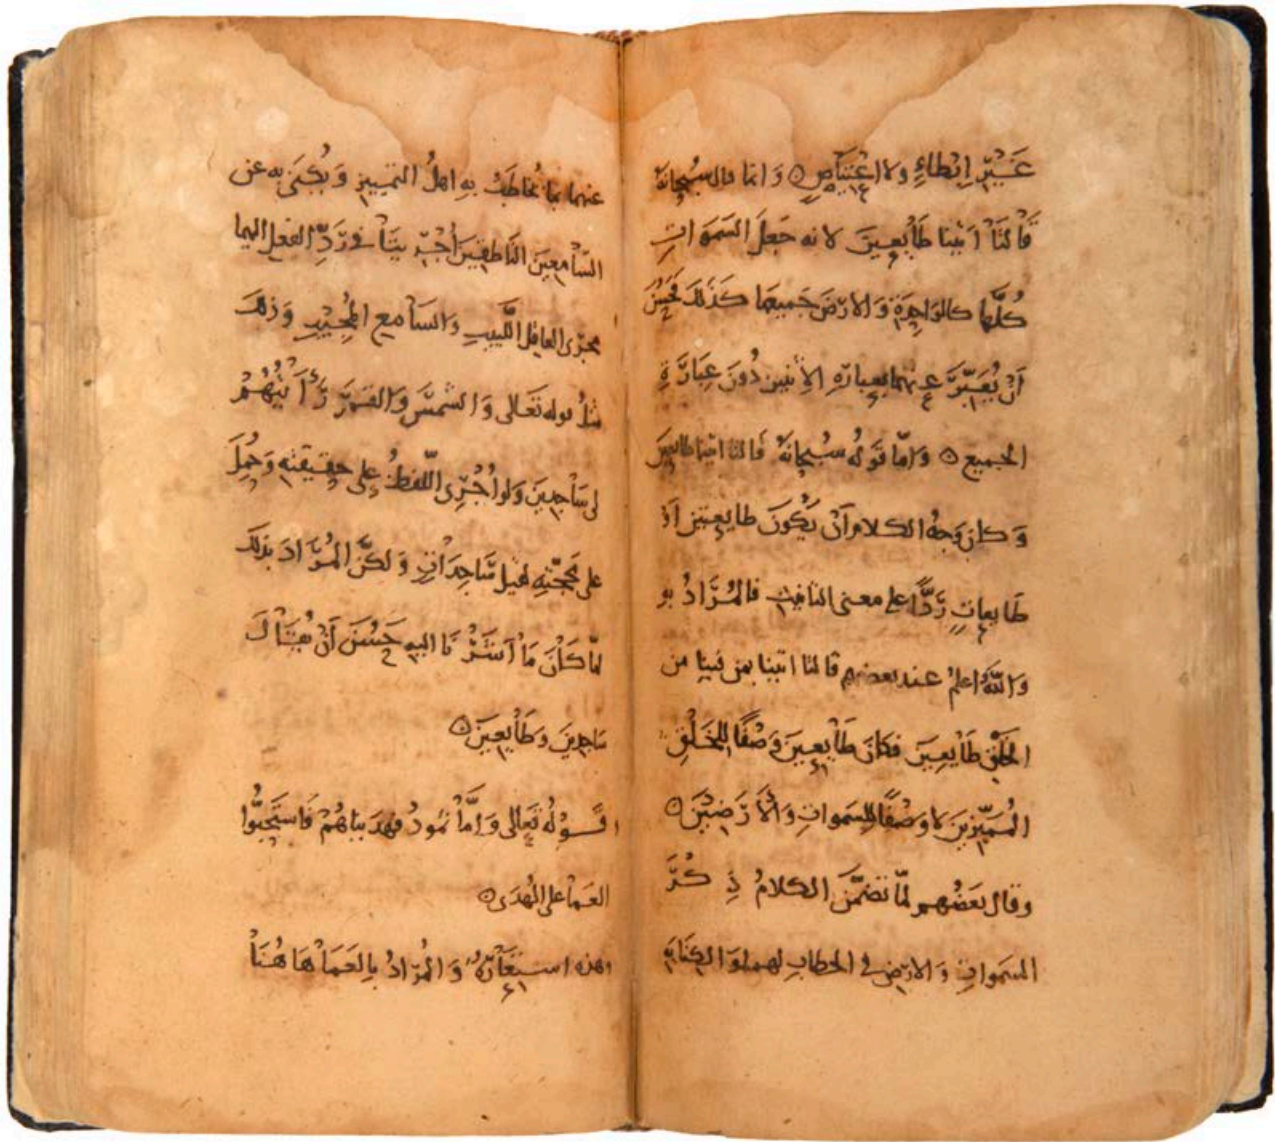 غَيْرِ اِبْطَاءٍ ولا اعْتِيَاصٍ ۝ وَ انما قال سُبْحَانَهُ
قَالَتَا اَتَينا طَائِعِينَ لانه جَعَلَ السَمَوَاتِ
كُلَّهَا كالوَاحِدَةِ وَ الارْضَ جَمِيعهَا كَذَلكَ فَحَسُنَ
اَنْ يُعَبِّرَ عنهما بِعِبارَةِ الاثنين دُونَ عِبَارَةِ
الجميع ۝ وَ امّا قَولُه سُبْحانَهُ قَالتا اتينا طايعين
وَ كان وَجهُ الكلام اَنْ يَكُونَ طايعتين اَوْ
طَايعاتٍ رَدًّا على معنى التانيث فالمُرَادُ بهِ
وَاللهُ اعلمُ عند بعضهم قالتا اتينا بمن فينا من
الخَلْقِ طَايِعِينَ فكانَ طَايِعِينَ وَصْفًا لِلخَلْقِ
المُمَيِّزينَ لا وَصْفًا للسموَاتِ وَالأَرَضِيْنَ ۝
وقال بَعضُهم لمّا تَضَمَّنَ الكلامُ ذِكْرَ
السَموَاتِ وَ الارْضِ في الخطابِ لهما وَ الكِنَايَةِ
عنهما بما يُخَاطَبُ بِهِ اهلُ التمييزِ وَ يُكْنَى بِه عن
السَّامِعِينَ النَّاطِقِينَ أُجْرِيَتَا في رَدِّ الفعل اليهما
مجرَى العاقل اللَّبيبِ وَ السَّامعِ المُجيبِ وَ ذلكَ
مثلُ قوله تَعَالى وَ الشمسَ وَ القَمَرَ رَأَيْتُهُمْ
لي سَاجِدِينَ وَ لو أُجْرِيَ اللّفظُ على حَقِيقَتِهِ وَحُمِلَ
على مَحَجَّتِهِ لقيل سَاجِدَاتٍ وَ لكنَّ المُرَادَ بذلكَ
لمّا كَانَ مَا اَشَرْنَا اليهِ حَسُنَ اَنْ يُقَالَ
سَاجِدِينَ وَ طَايِعِينَ ۝
قَولُهُ تَعَالى وَ اَمَّا ثمُودُ فهدَيناهُمْ فَاستَحَبُّوا
العَمَا على الهُدَى ۝
وهذه استِعَارَةٌ وَ المُرَادُ بِالعَمَا هَا هُنَا